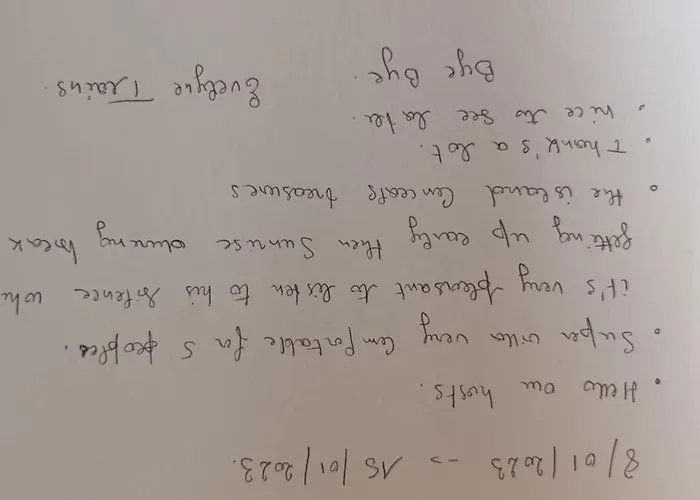 8/01/2023 -> 15/01/2023.
• Hello our hosts.
• Super villa very Comfortable for 5 peoples.
it's very pleasant to listen to his silence whi
getting up early then Sunrise during break
• the island Conceals treasures
• Thank's a lot.
• nice to see later.
Bye Bye. Evelyne Trains.